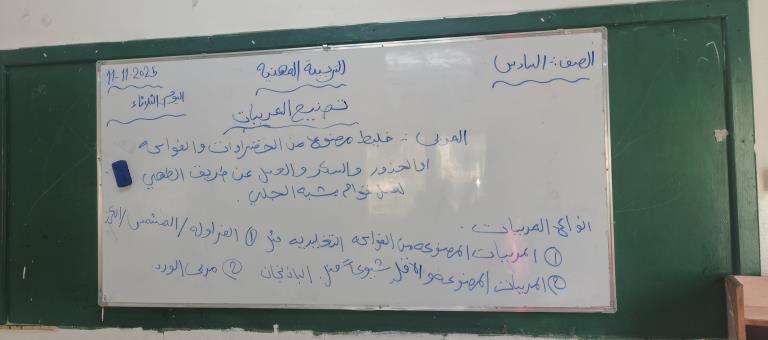 الصف: السادس
التربية المهنية
11-11-2025
اليوم: الثلاثاء
تصنيع المربيات
المربى: خليط مصنوع من الخضراوات والفواكه
او الجذور والسكر والعسل عن طريق الطهي
لعمل قوام يشبه الجلي.
انواع المربيات:
① المربيات المصنوعه من الفواكه التقليديه مثل ① الفراوله / المشمش /
② المربيات المصنوعه الاقل شيوعاً مثل الباذنجان ② مربى الورد